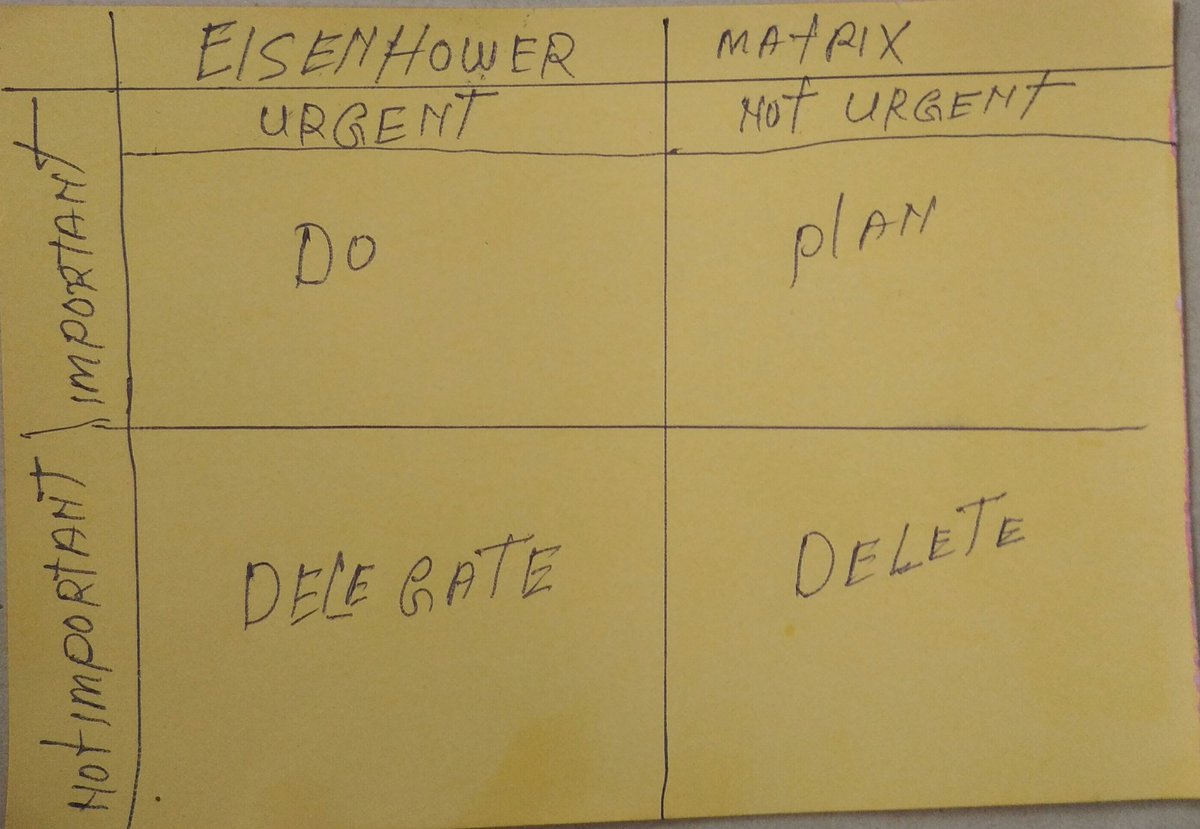 EISENHOWER MATRIX
URGENT NOT URGENT
IMPORTANT
DO PlAN
NOT IMPORTANT
DELEGATE DELETE